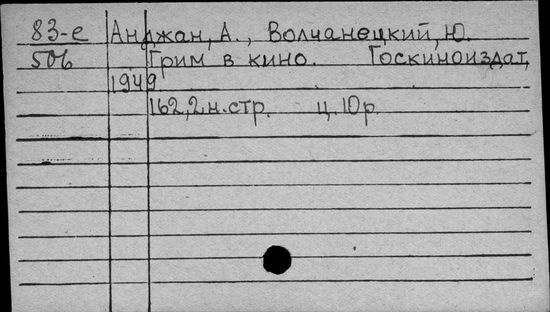 83-е Анджан, А., Волчанецкий, Ю.
506 Грим в кино. Госкиноиздат,
1949
162,2н.стр. ц. 10р.